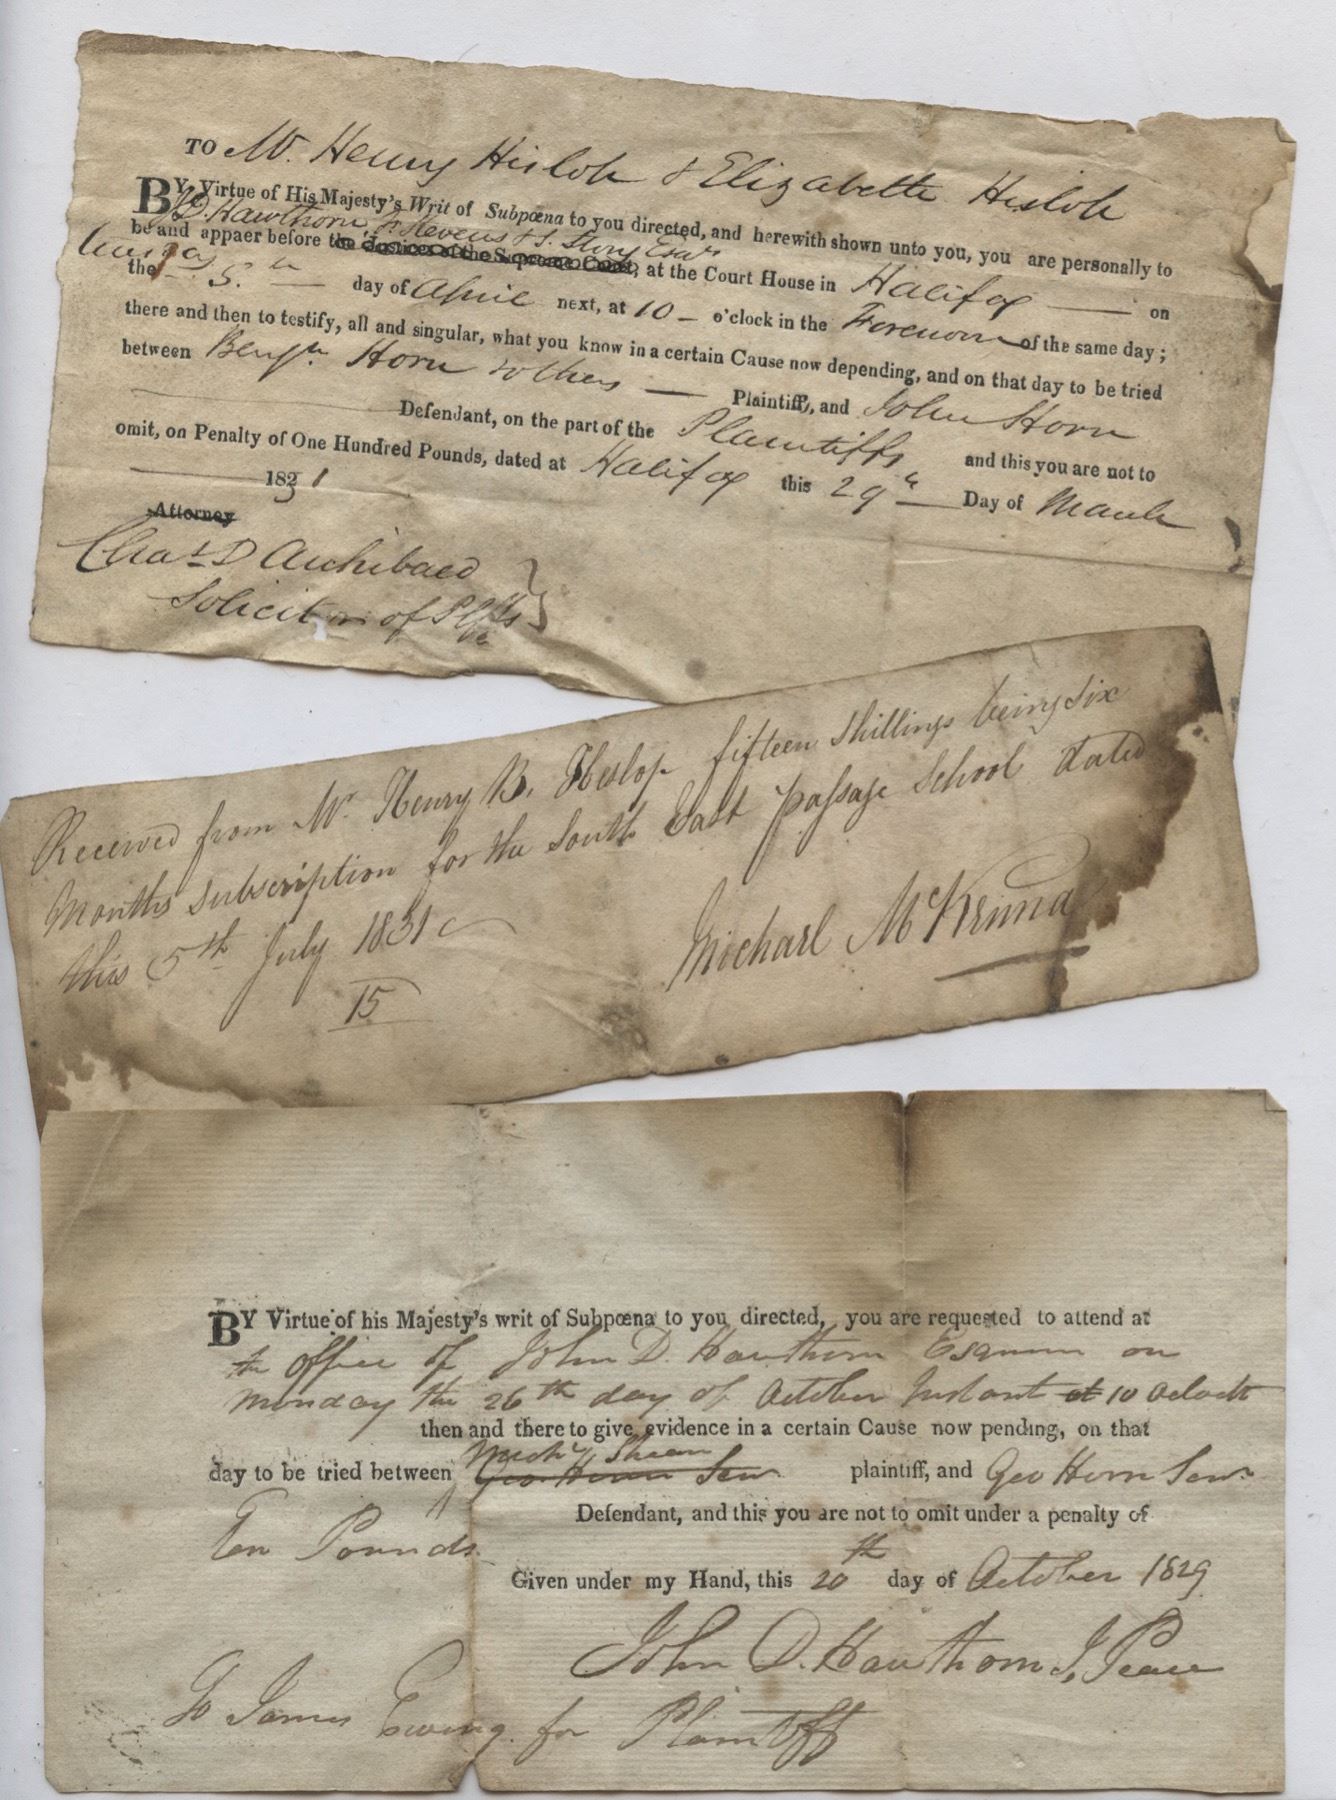 TO Mr. Henry Hislop & Elizabeth Hislop
BY Virtue of His Majesty's Writ of Subpœna to you directed, and herewith shown unto you, you are personally to
J D. Hawthorn, J. Stevens & J. Story Esqrs
be and appaer before the Justices of the Supreme Court, at the Court House in Halifax on
the 5th day of April next, at 10 o'clock in the Forenoon of the same day;
there and then to testify, all and singular, what you know in a certain Cause now depending, and on that day to be tried
between Benjn. Horn & others Plaintiff, and John Horn
Defendant, on the part of the Plaintiffs and this you are not to
omit, on Penalty of One Hundred Pounds, dated at Halifax this 29th Day of March
1831
Attorney
Chas D Archibald
Solicitor of Plffs
Received from Mr Henry B. Heslop fifteen shillings being six
Months subscription for the South East passage School dated
this 5th July 1831
15
Michael McKenna
BY Virtue of his Majesty's writ of Subpœna to you directed, you are requested to attend at
the office of John D. Hawthorn Esq on
Monday the 26th day of October Instant at 10 oclock
then and there to give evidence in a certain Cause now pending, on that
Michl Shean
day to be tried between Geo Horn Senr plaintiff, and Geo Horn Senr
Defendant, and this you are not to omit under a penalty of
Ten Pounds
Given under my Hand, this 20th day of October 1829
John D. Hawthorn J, Peace
To James Ewing for Plaintiff